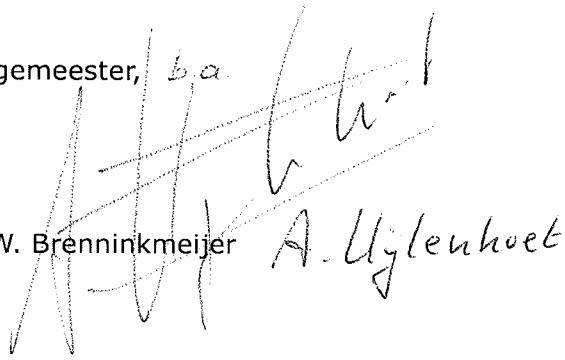 gemeester, b.a.
W. Brenninkmeijer A. Uijlenhoet